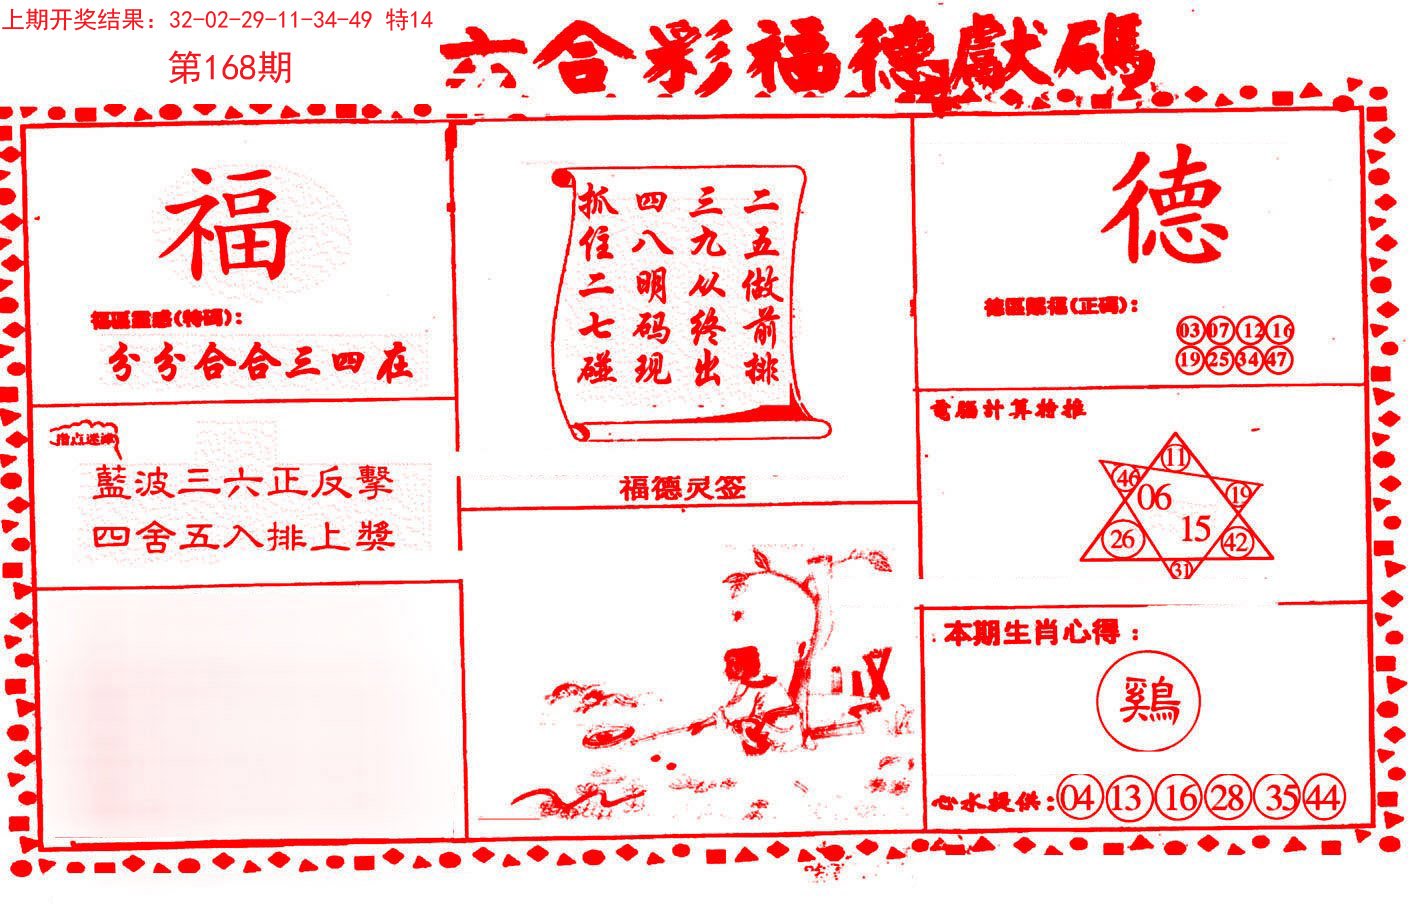 上期开奖结果：32-02-29-11-34-49 特14
第168期
六合彩福德獻碼
福
福區靈感(特碼)：
分分合合三四在
指点迷津
藍波三六正反擊
四舍五入排上獎
二五做前排
三九从终出
四八明码现
抓住二七碰
福德灵签
德
德區賜福(正码)：
03 07 12 16
19 25 34 47
電腦計算特推
11
46 19
06
15
26 42
31
本期生肖心得：
鷄
心水提供：04 13 16 28 35 44